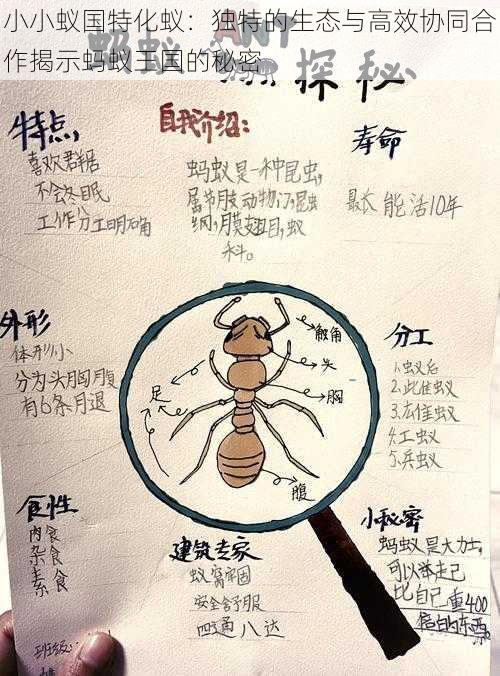 小小蚁国特化蚁：独特的生态与高效协同合
作揭示蚂蚁王国的秘密
蚂蚁 ANT 探秘
特点
喜欢群居
不会冬眠
工作分工明确
自我介绍：
蚂蚁是一种昆虫，
属节肢动物门，昆虫
纲，膜翅目，蚁
科。
寿命
最长能活10年
外形
体形小
分为头胸腹
有6条月退
触角
头
胸
足
腹
分工
1.蚁后
2.此隹蚁
3.右隹蚁
4.工蚁
5.兵蚁
食性
肉食
杂食
素食
建筑专家
蚁窝牢固
安全舒服
四通八达
小秘密
蚂蚁是大力士，
可以举走己
比自己重400
倍的东西。
班级：